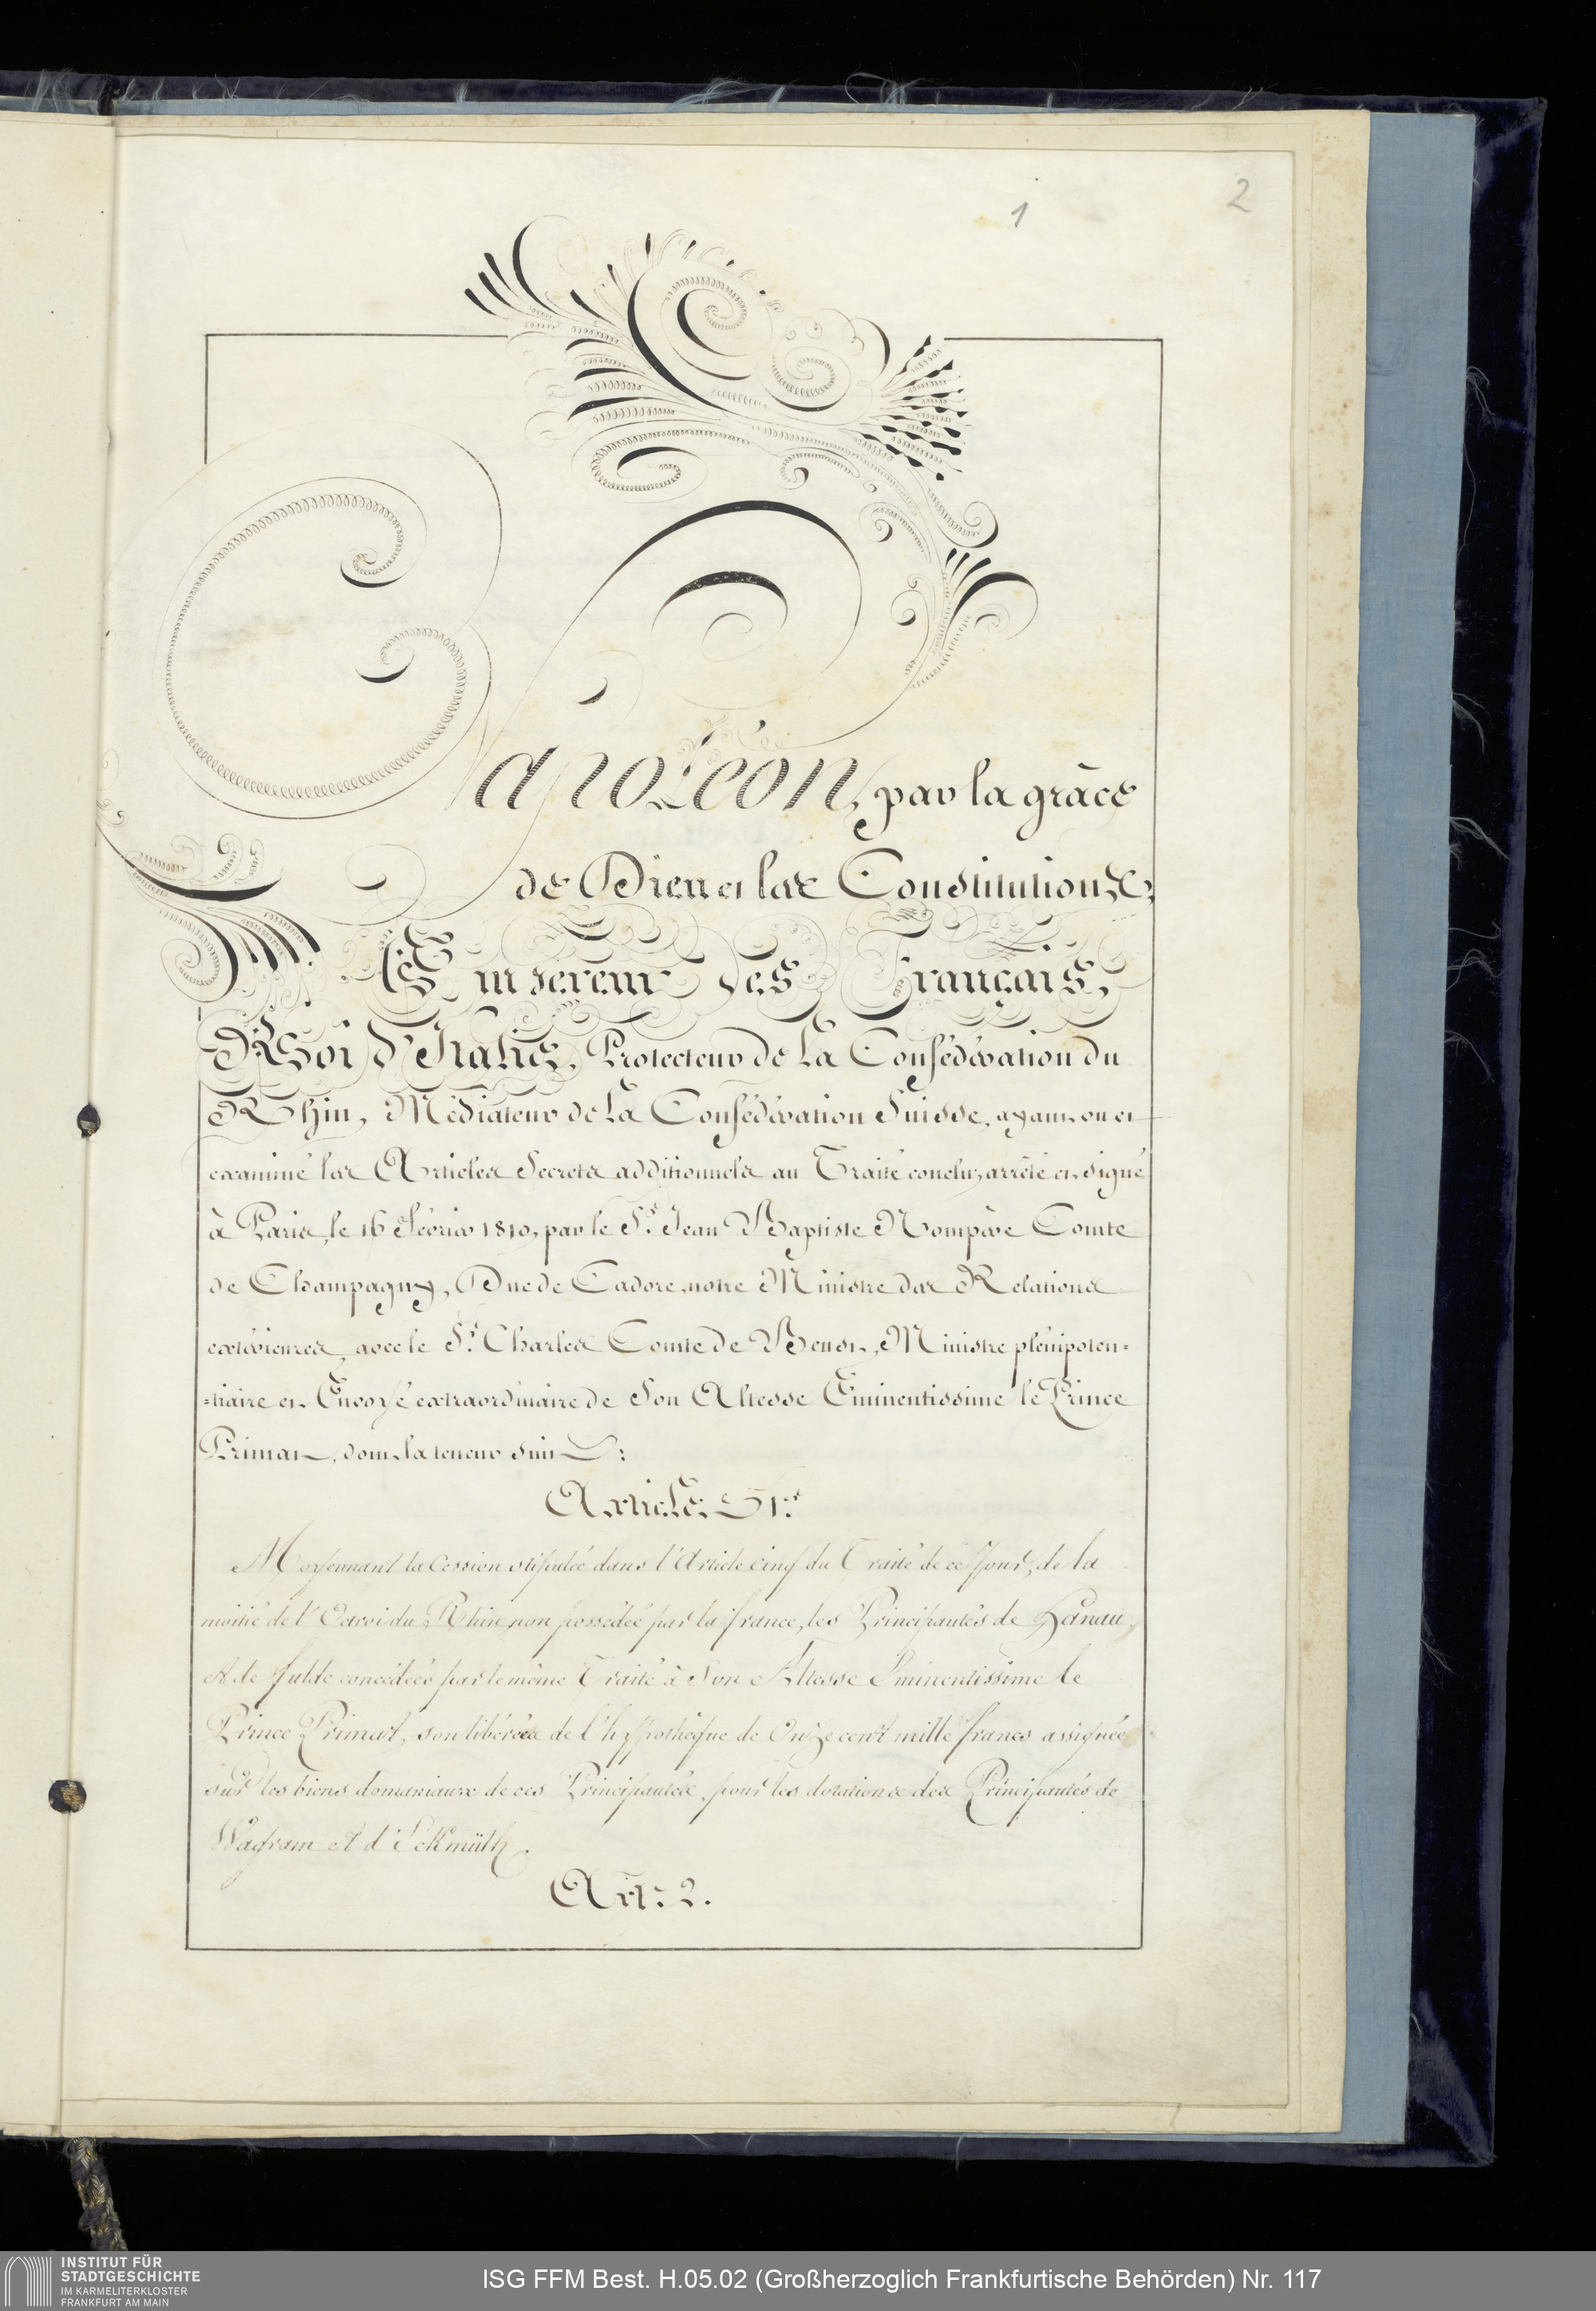 1
2
Napoléon, par la grâce
de Dieu et les Constitutions,
Empereur des Français,
Roi d'Italie, Protecteur de la Confédération du
Rhin, Médiateur de la Confédération Suisse, ayant vu et
examiné les Articles Secrets additionnels au Traité conclu, arrêté et signé
à Paris, le 16 Février 1810, par le Sr. Jean Baptiste Nompère Comte
de Champagny, Duc de Cadore, notre Ministre des Relations
extérieures, avec le Sr. Charles Comte de Beust, Ministre plénipoten=
=tiaire et Envoyé extraordinaire de Son Altesse Eminentissime le Prince
Primat, dont la teneur suit:
Article 1r.
Moyennant la Cession stipulée dans l'Article cinq du Traité de ce jour, de la
moitié de l'Octroi du Rhin, non possédée par la france, les Principautés de Hanau
et de fulde concédées par le même Traité à Son Altesse Eminentissime le
Prince Primat, sont libérées de l'hypothèque de Onze cent mille francs assignée
sur les biens domaniaux de ces Principautés, pour les dotations des Principautés de
Wagram et d'Eckmühl.
Art: 2.
INSTITUT FÜR
STADTGESCHICHTE
IM KARMELITERKLOSTER
FRANKFURT AM MAIN
ISG FFM Best. H.05.02 (Großherzoglich Frankfurtische Behörden) Nr. 117